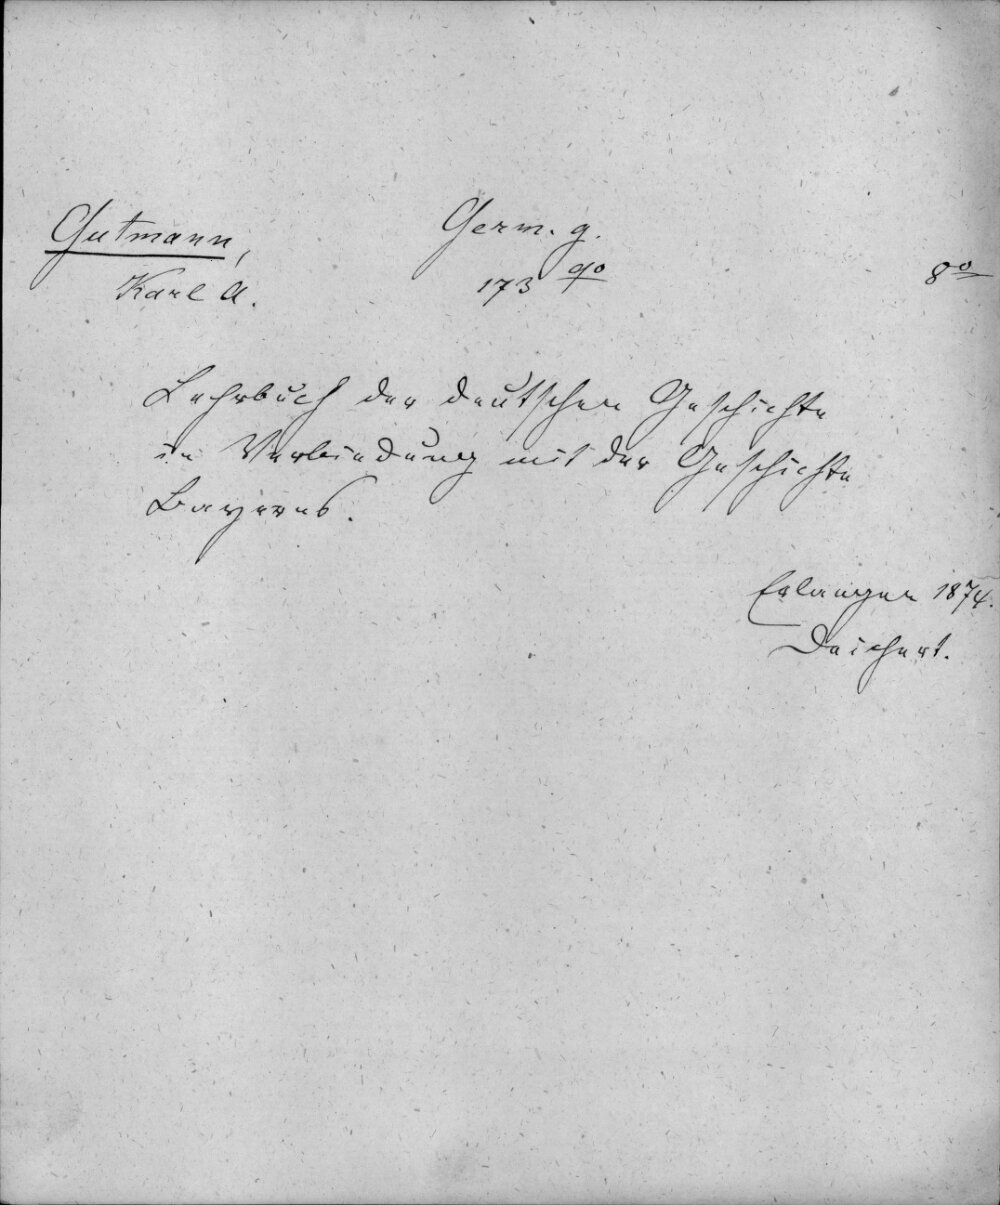 Gutmann,
Karl A.
Germ. g.
173 qo
8o
Lehrbuch der deutschen Geschichte
in Verbindung mit der Geschichte
Bayerns.
Erlangen 1874.
Deichert.